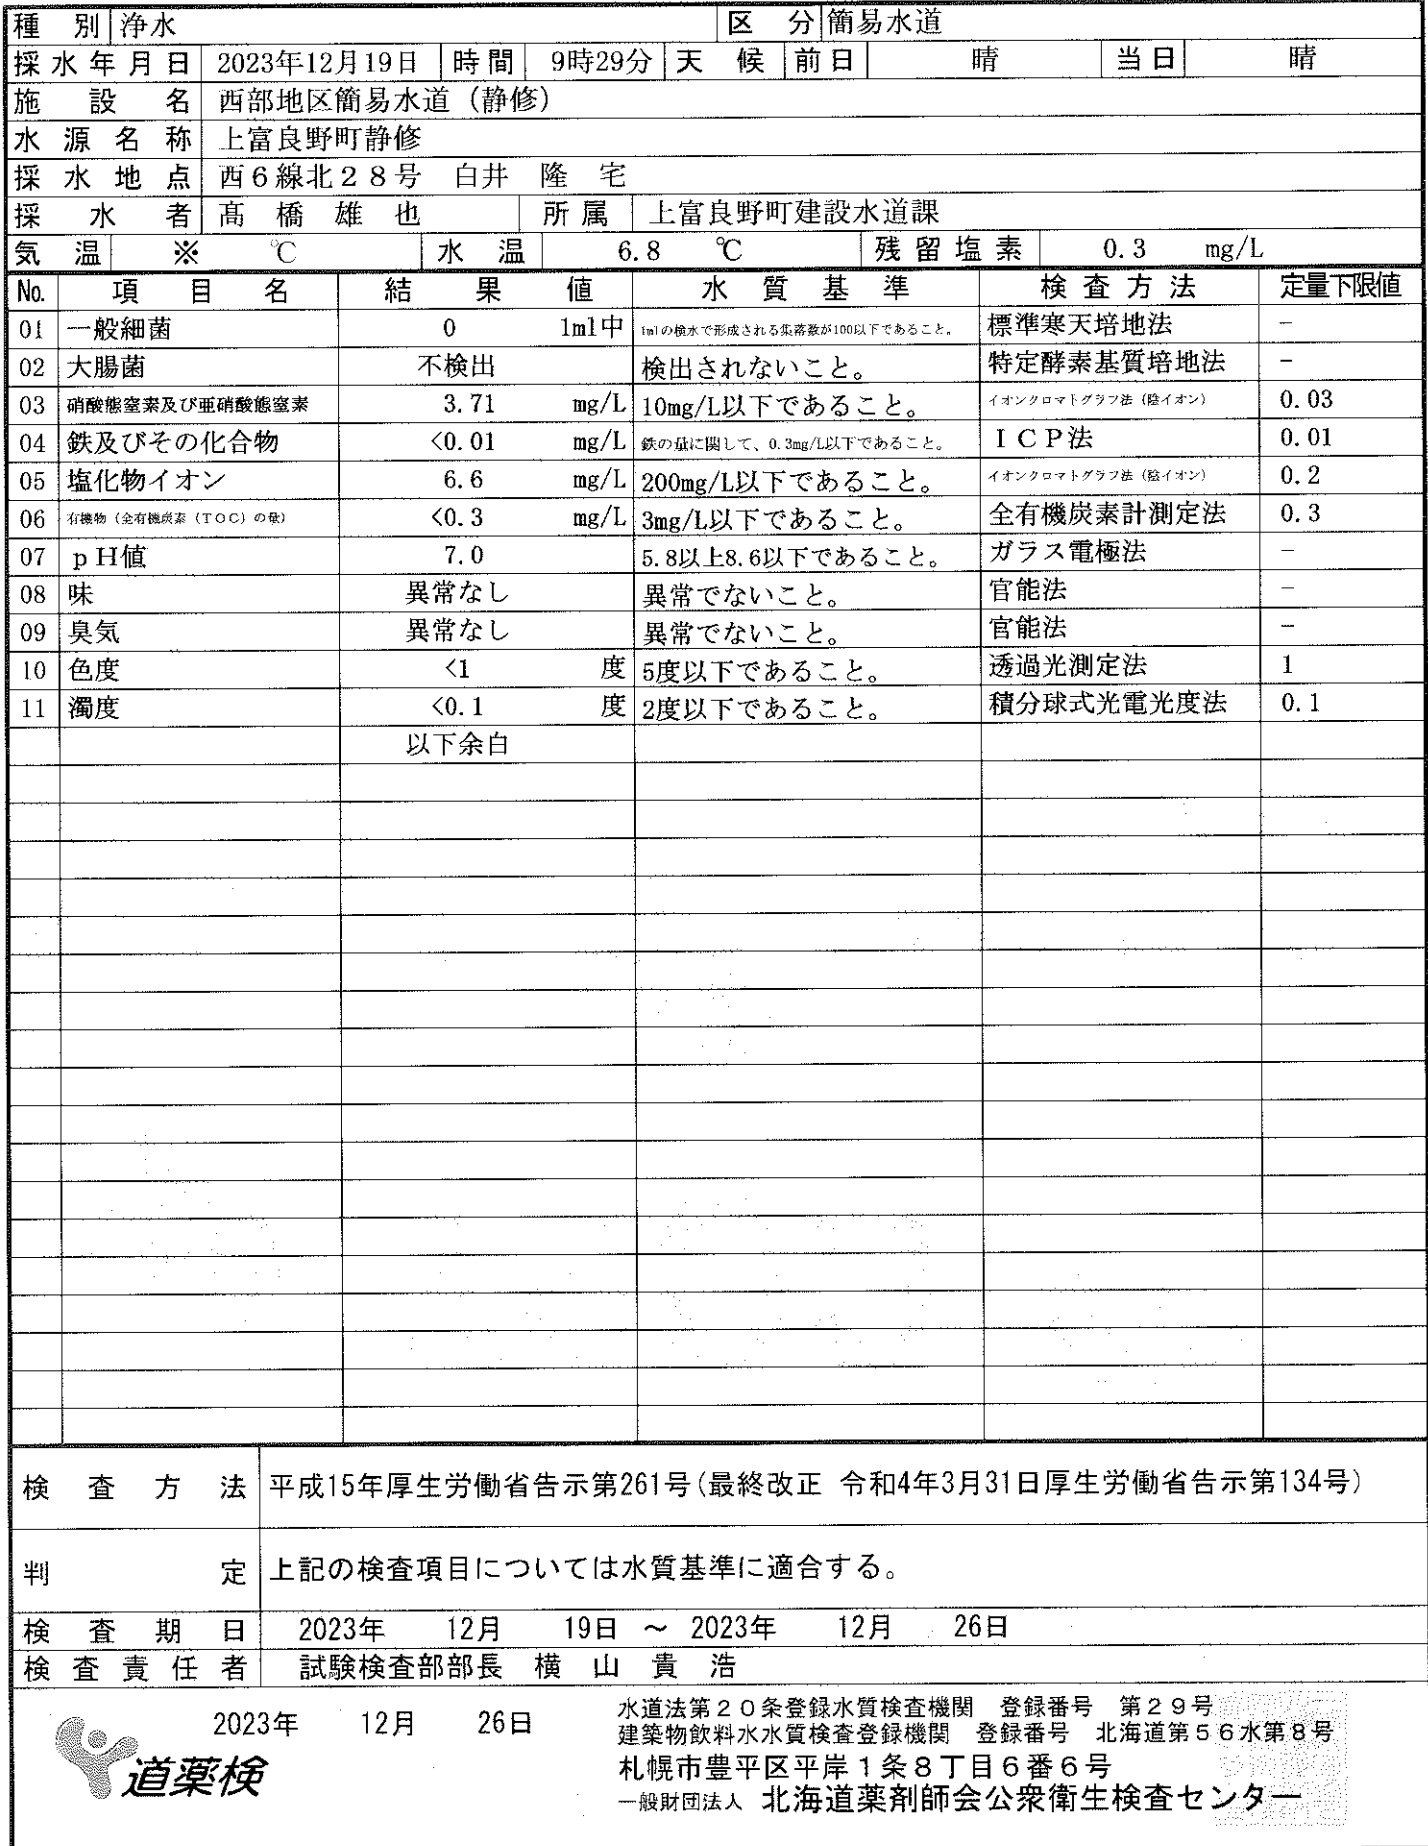 種 別 浄水 区 分 簡易水道
採水年月日 2023年12月19日 時間 9時29分 天 候 前日 晴 当日 晴
施 設 名 西部地区簡易水道（静修）
水源名称 上富良野町静修
採水地点 西６線北２８号 白井 隆 宅
採 水 者 髙 橋 雄 也 所属 上富良野町建設水道課
気 温 ※ ℃ 水 温 6.8 ℃ 残留塩素 0.3 mg/L
No. 項 目 名 結 果 値 水 質 基 準 検査方法 定量下限値
01 一般細菌 0 1ml中 1mlの検水で形成される集落数が100以下であること。 標準寒天培地法 －
02 大腸菌 不検出 検出されないこと。 特定酵素基質培地法 －
03 硝酸態窒素及び亜硝酸態窒素 3.71 mg/L 10mg/L以下であること。 イオンクロマトグラフ法（陰イオン） 0.03
04 鉄及びその化合物 <0.01 mg/L 鉄の量に関して、0.3mg/L以下であること。 ＩＣＰ法 0.01
05 塩化物イオン 6.6 mg/L 200mg/L以下であること。 イオンクロマトグラフ法（陰イオン） 0.2
06 有機物（全有機炭素（ＴＯＣ）の量） <0.3 mg/L 3mg/L以下であること。 全有機炭素計測定法 0.3
07 ｐＨ値 7.0 5.8以上8.6以下であること。 ガラス電極法 －
08 味 異常なし 異常でないこと。 官能法 －
09 臭気 異常なし 異常でないこと。 官能法 －
10 色度 <1 度 5度以下であること。 透過光測定法 1
11 濁度 <0.1 度 2度以下であること。 積分球式光電光度法 0.1
以下余白
検 査 方 法 平成15年厚生労働省告示第261号(最終改正 令和4年3月31日厚生労働省告示第134号)
判 定 上記の検査項目については水質基準に適合する。
検 査 期 日 2023年 12月 19日 ～ 2023年 12月 26日
検査責任者 試験検査部部長 横 山 貴 浩
2023年 12月 26日
道薬検
水道法第２０条登録水質検査機関 登録番号 第２９号
建築物飲料水水質検査登録機関 登録番号 北海道第５６水第８号
札幌市豊平区平岸１条８丁目６番６号
一般財団法人 北海道薬剤師会公衆衛生検査センター